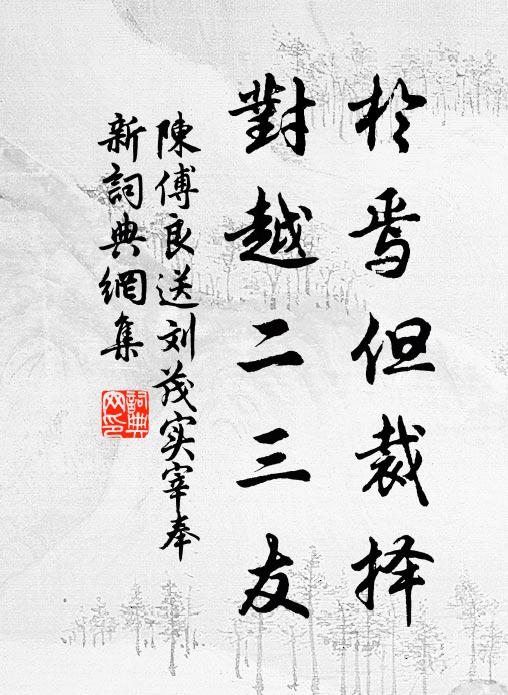 於焉但裁择
對越二三友
陳傅良送刘茂实宰奉
新詞典網集
詞典
网印